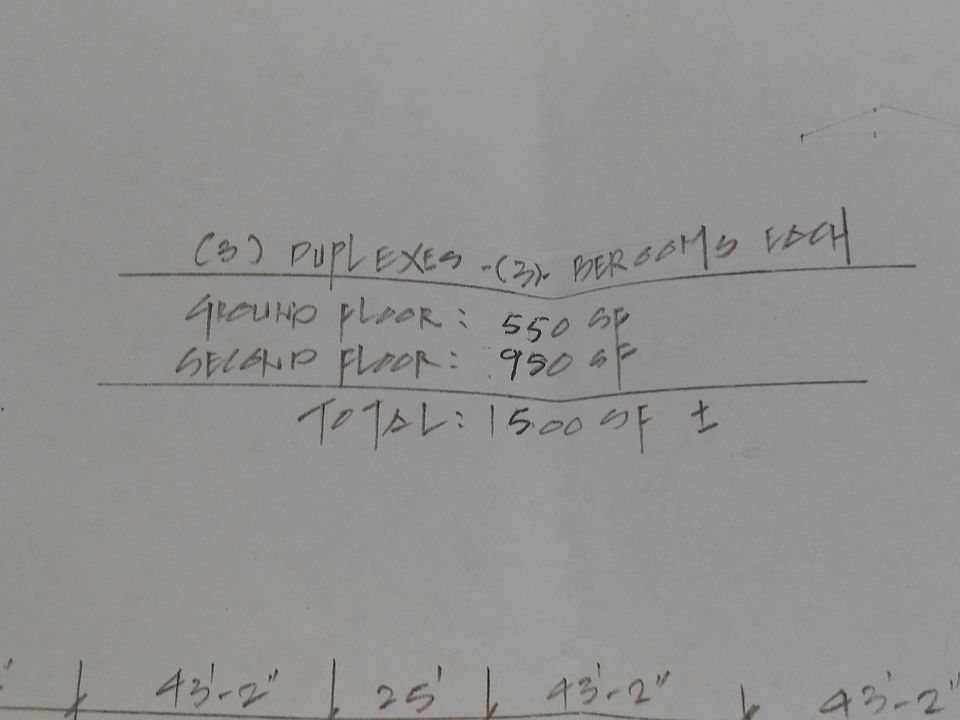 (3) DUPLEXES -(3)- BEROOMS EACH
GROUND FLOOR: 550 SF
SECOND FLOOR: 950 SF
TOTAL: 1500 SF ±
43'-2" 25' 43'-2" 43'-2"